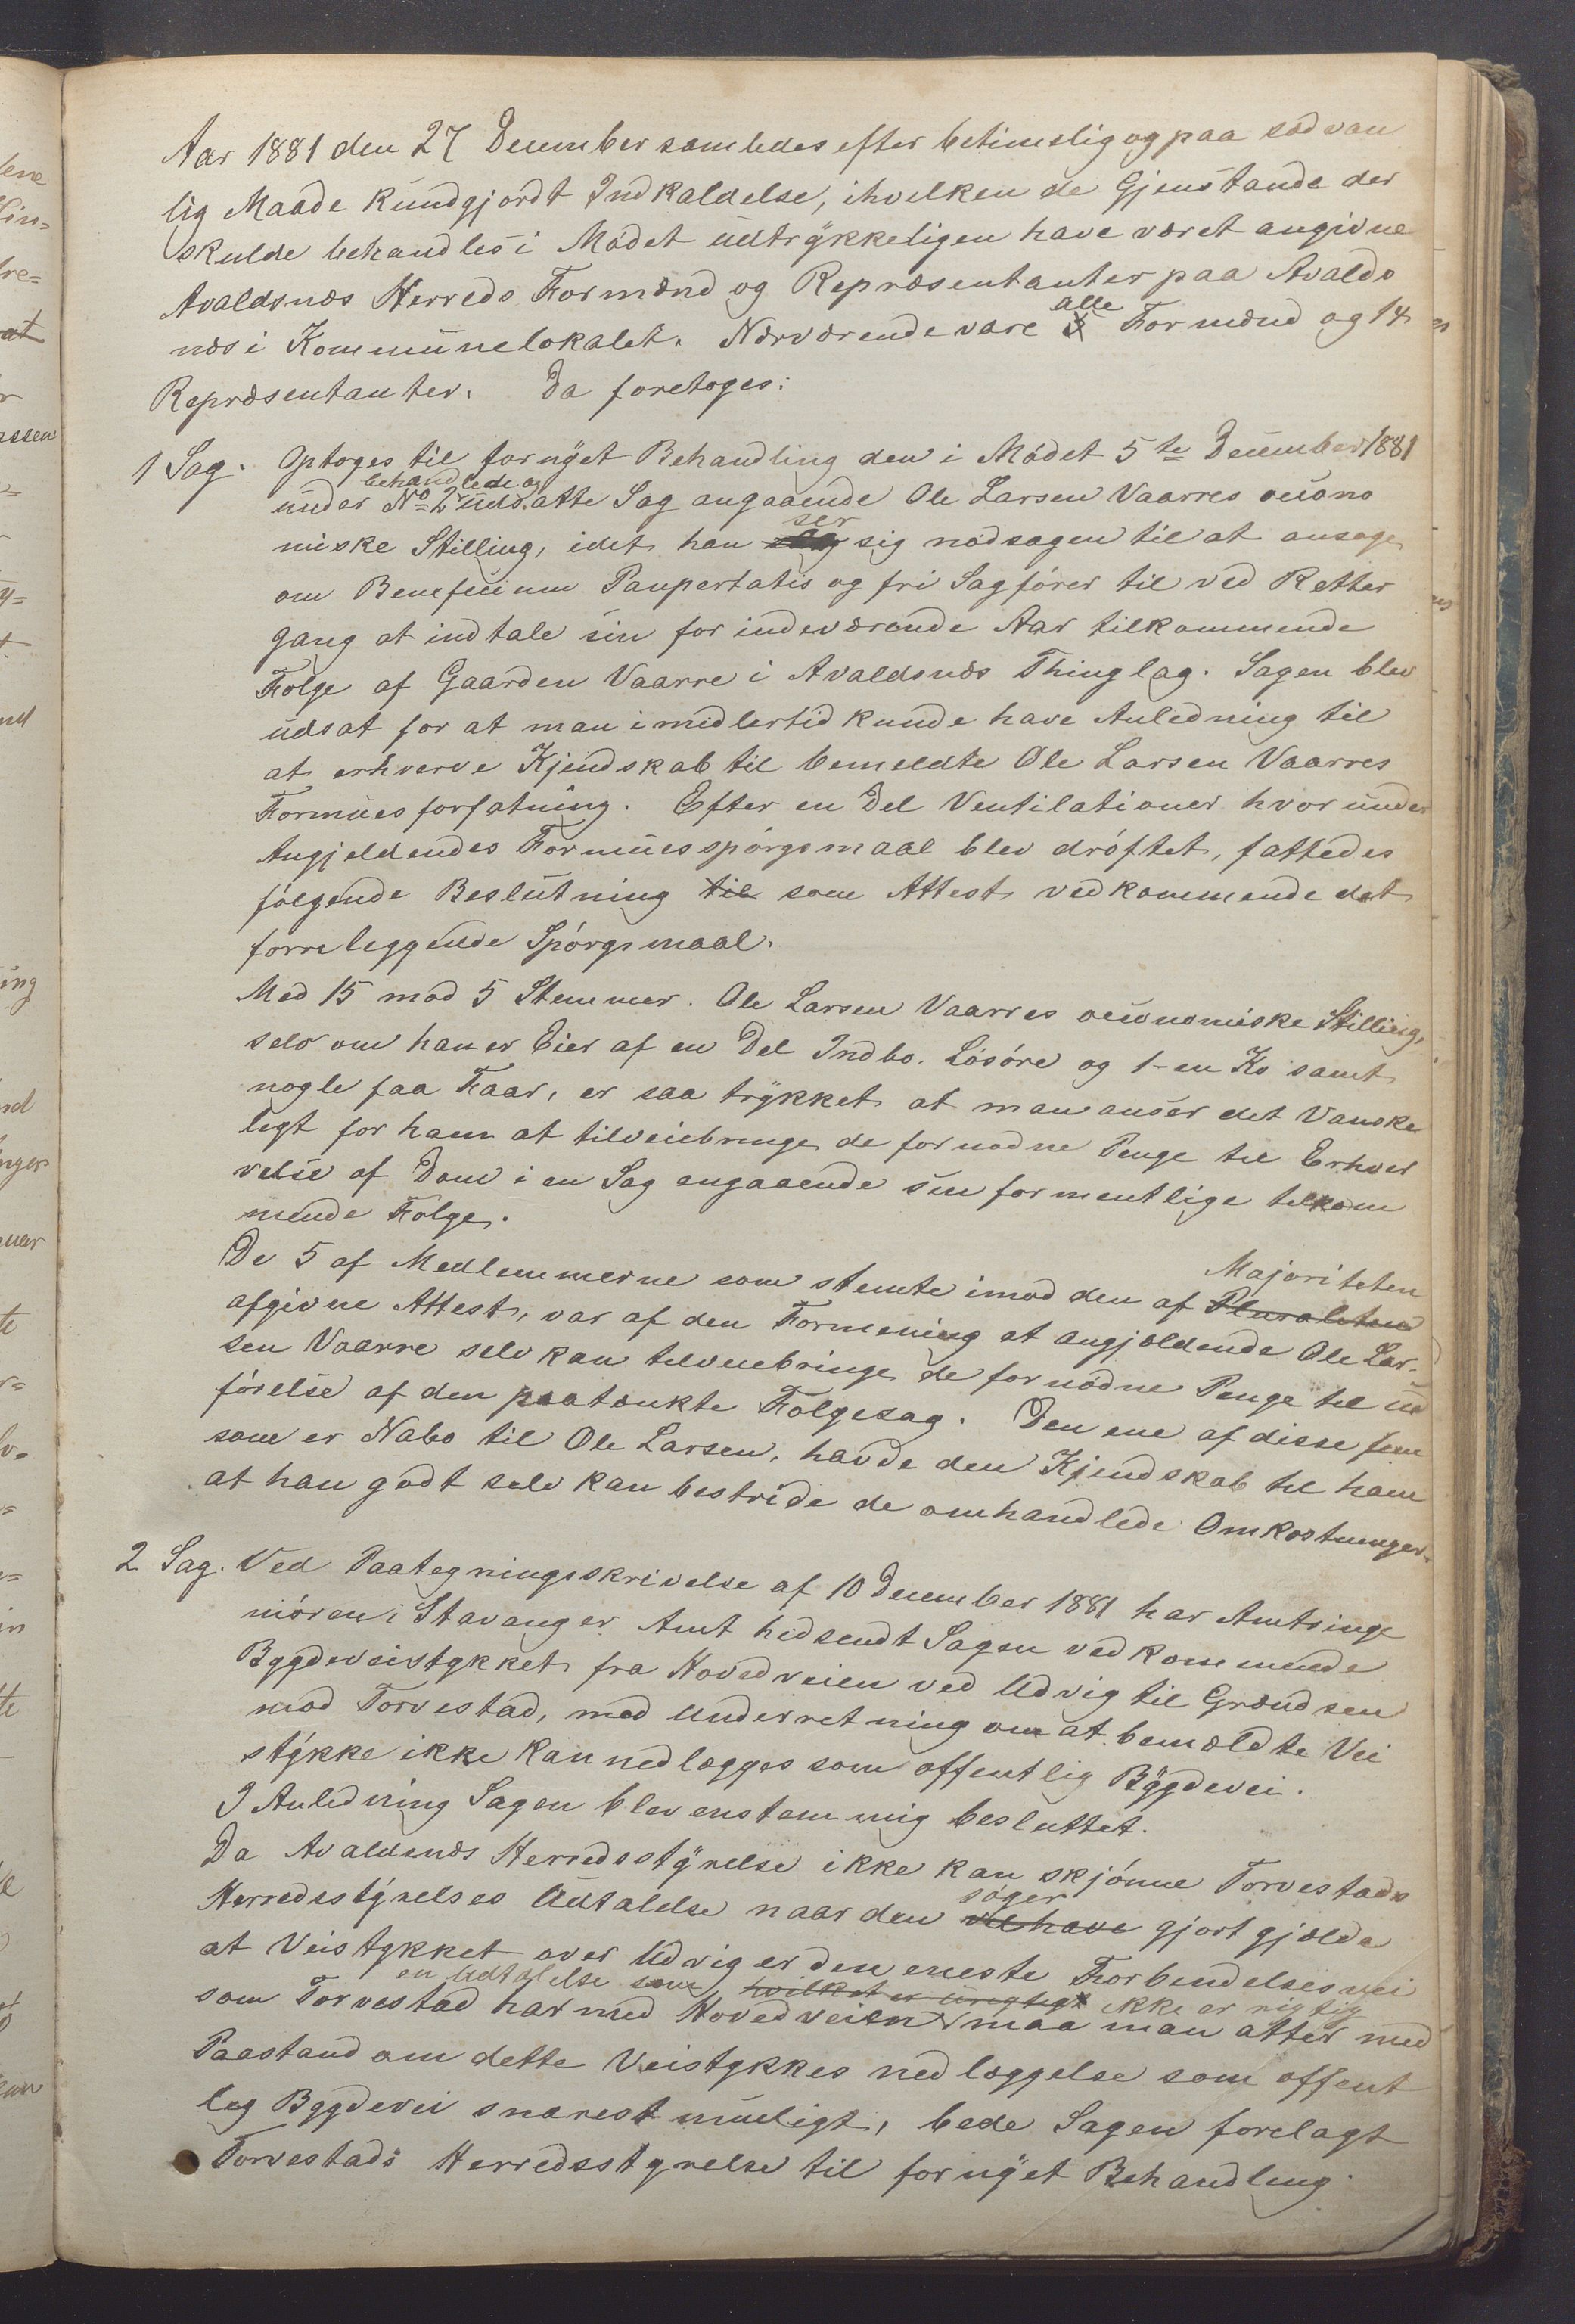 Aar 1881 den 27 December samledes efter betimelig og paa sædvan
lig Maade kundgjordt Indkaldelse, ihvilken de Gjenstande der
skulde behandles i Mødet udtrykkeligen have været angivne
Avaldsnæs Herreds Formænd og Repræsentanter paa Avalds
næs i Kommunelokalet. Nærværende vare alle Formænd og 14
Repræsentanter. Da foretoges:
1 Sag. Optoges til fornyet Behandling den i Mødet 5te December 1881
under No 2 behandlede og udsatte Sag angaaende Ole Larsen Vaarres oecono
miske Stilling, idet han ser sig nødsagen til at ansøge
om Beneficium Paupertatis og fri Sagfører til ved Retter
gang at indtale sin for indeværende Aar tilkommende
Følge af Gaarden Vaarre i Avaldsnæs Thinglag. Sagen blev
udsat for at man imidlertid kunde have Anledning til
at erhverve Kjendskab til bemeldte Ole Larsen Vaarres
Formuesforfatning. Efter en Del Ventilationer hvorunder
Angjeldendes Formuesspørgsmaal blev drøftet, fattedes
følgende Beslutning til som Attest vedkommende det
forreleggende Spørgsmaal.
Med 15 mod 5 Stemmer. Ole Larsen Vaarres oeconomiske Stilling,
selv om han er Eier af en Del Indbo. Løsøre og 1-en Ko samt
nogle faa Faar, er saa trykket at man anser det Vanske
ligt for ham at tilveiebringe de fornødne Penge til Erhver
velse af Dom i en Sag angaaende sin formentlige tilkom
mende Følge.
De 5 af Medlemmerne som stemte imod den af Pluraliteten Majoriteten
afgivne Attest, var af den Formening at angjældende Ole Lar-
sen Vaarre selv kan tilveiebringe de fornødne Penge til ud
førelse af den paatænkte Følgesag. Den ene af disse fem
som er Nabo til Ole Larsen, havde den Kjendskab til ham
at han godt selv kan bestride de omhandlede Omkostninger.
2 Sag. Ved Paategningsskrivelse af 10 December 1881 har Amtsinge
niøren i Stavanger Amt hidsendt Sagen vedkommende
Bygdeveistykket fra Hovedveien ved Udvig til Grændsen
mod Torvestad, med Underretning om at bemældte Vei
stykke ikke kan nedlægges som offentlig Bygdevei.
I Anledning Sagen blev enstemmig besluttet.
Da Avaldsnæs Herredsstyrelse ikke kan skjønne Torvestads
Herredsstyrelses Udtalelse naar den vil have søger gjort gjælde
at Veistykket over Udvig er den eneste Forbindelsesvei
som Torvestad har med Hovedveien hvilket er urigtigt en Udtalelse som ikke er rigtig maa man atter med
Paastand om dette Veistykkes nedlæggelse som offent
lig Bygdevei snarest mueligt, bede Sagen forelagt
Torvestads Herredsstyrelse til fornyet Behandling.